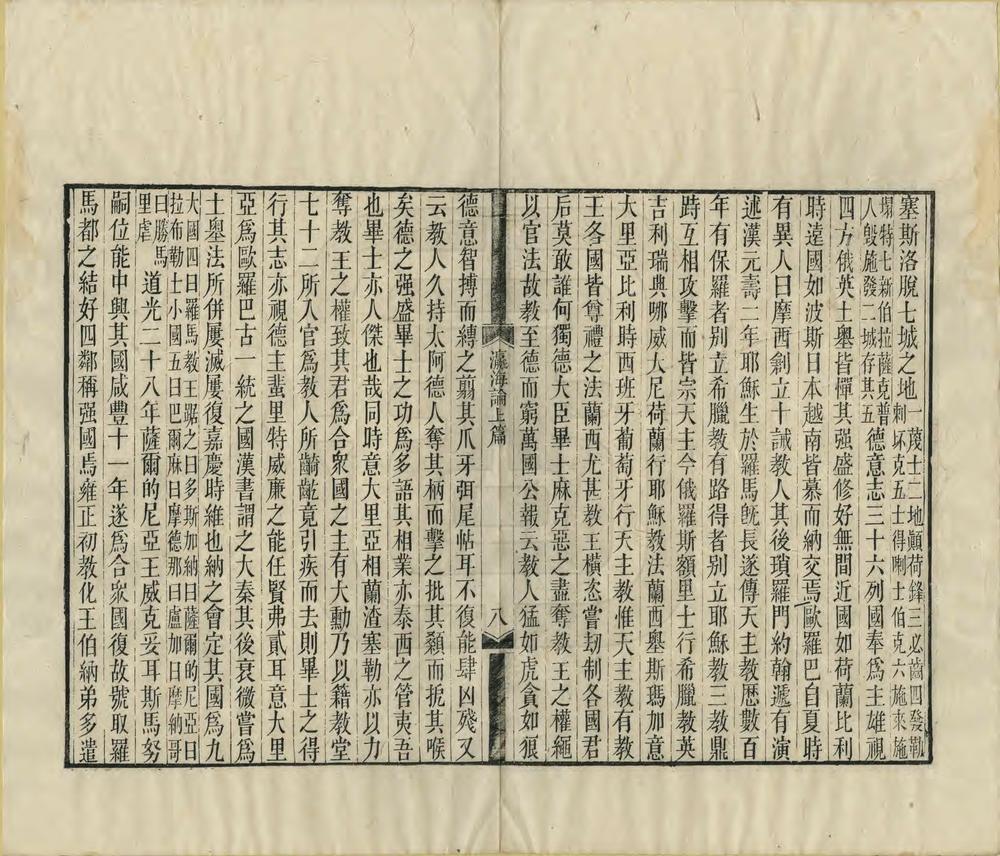 塞斯洛脫七城之地一薎士二地顚荷鋒三必齒四發勒
塌特七新伯拉薩克普剌坏克五士得喇士伯克六施來施
人毁施發二城存其五德意志三十六列國奉爲主雄視
四方俄英土奧皆憚其强盛修好無間近國如荷蘭比利
時遠國如波斯日本越南皆慕而納交焉歐羅巴自夏時
有異人曰摩西剏立十誡教人其後瑣羅門約翰遞有演
述漢元壽二年耶穌生於羅馬旣長遂傳天主教歷數百
年有保羅者别立希臘教有路得者别立耶穌教三教鼎
跱互相攻擊而皆宗天主今俄羅斯額里士行希臘教英
吉利瑞典哪威大尼荷蘭行耶穌教法蘭西奧斯瑪加意
大里亞比利時西班牙葡萄牙行天主教惟天主教有教
王各國皆尊禮之法蘭西尤甚教王橫恣嘗刧制各國君
后莫敢誰何獨德大臣畢士麻克惡之盡奪教王之權繩
以官法故教至德而窮萬國公報云教人猛如虎貪如狼
瀛海論上篇
八
德意智搏而縛之翦其爪牙弭尾帖耳不復能肆凶殘又
云教人久持太阿德人奪其柄而擊之批其纇而扼其喉
矣德之强盛畢士之功爲多語其相業亦泰西之管夷吾
也畢士亦人傑也哉同時意大里亞相蘭渣塞勒亦以力
奪教王之權致其君爲合衆國之主有大勳乃以籍教堂
七十二所入官爲教人所齮齕竟引疾而去則畢士之得
行其志亦視德主蜚里特威廉之能任賢弗貳耳意大里
亞爲歐羅巴古一統之國漢書謂之大秦其後衰微嘗爲
土奧法所併屢滅屢復嘉慶時維也納之會定其國爲九
大國四曰羅馬教王踞之曰多斯加納曰薩爾的尼亞曰
拉布勒士小國五曰巴爾麻曰摩德那曰盧加曰摩納哥
曰勝馬里虐道光二十八年薩爾的尼亞王威克妥耳斯馬努
嗣位能中興其國咸豐十一年遂爲合衆國復故號取羅
馬都之結好四鄰稱强國焉雍正初教化王伯納弟多遣